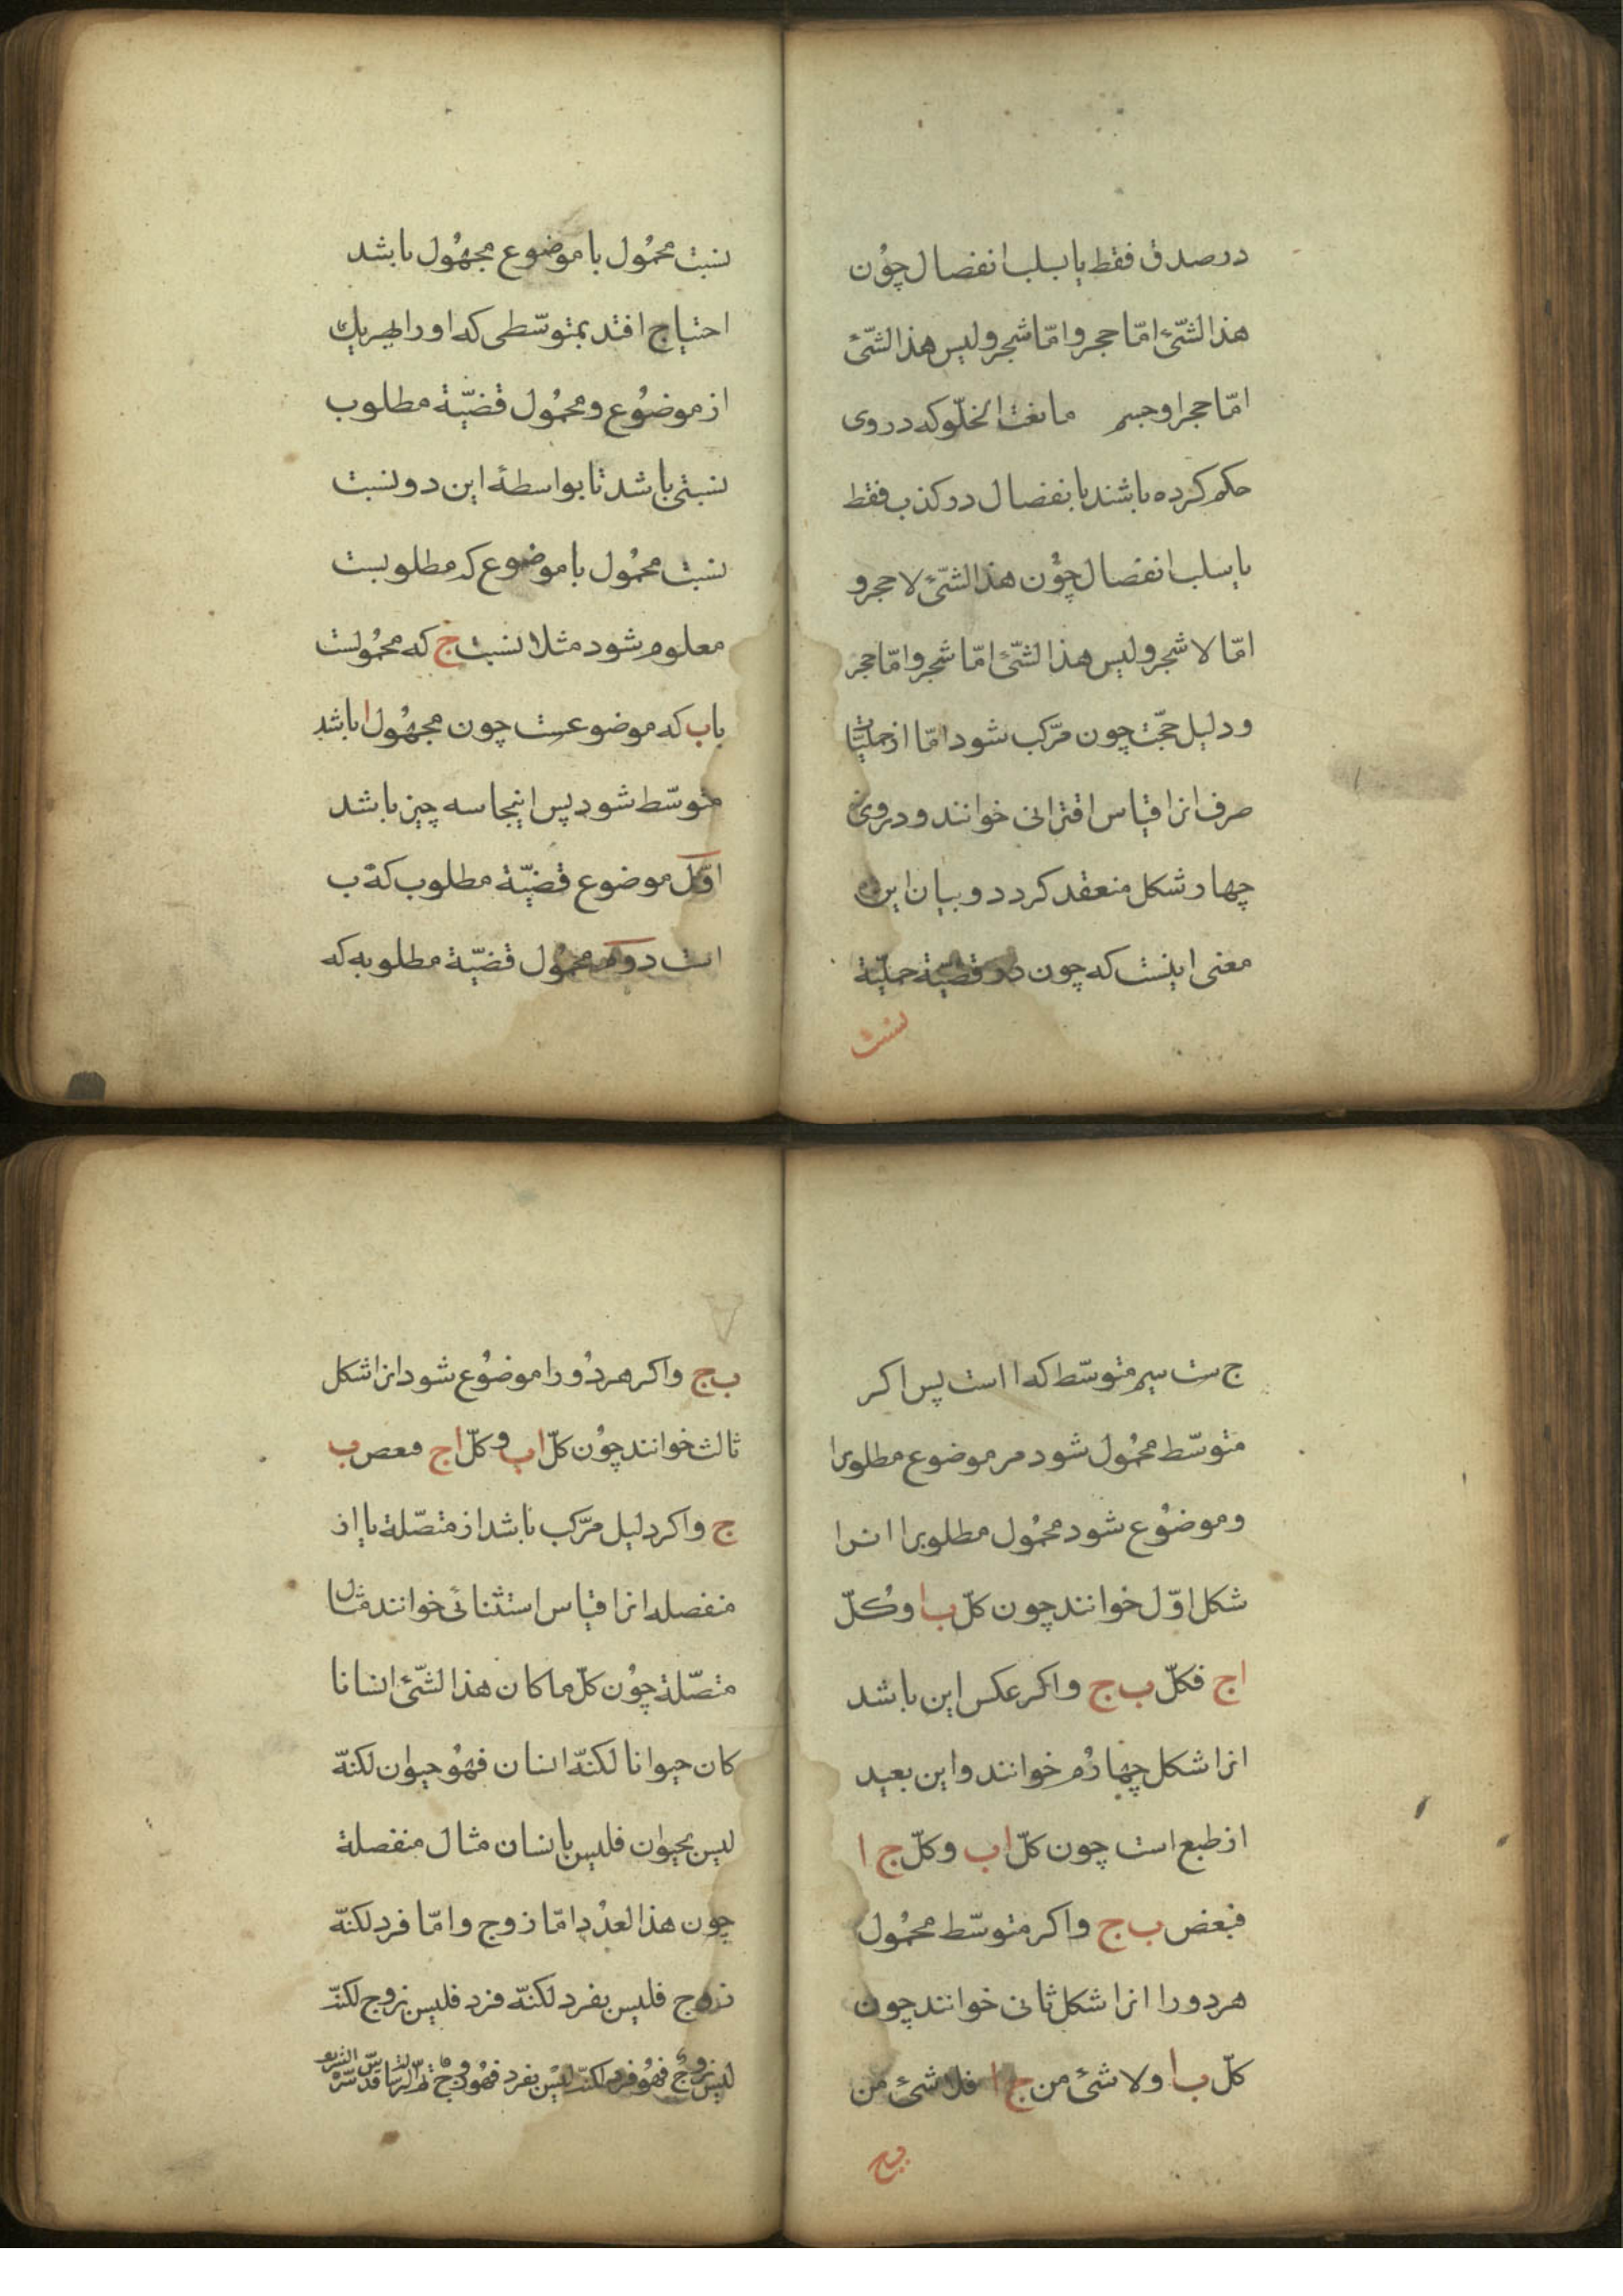 درصدق فقط یا بسلب انفصال چون
هذا الشّئ امّا حجر و امّا شجر و لیس هذا الشّئ
امّا حجرا و جسم مانعة الخلّو که در وی
حکم کرده باشند بانفصال در کذب فقط
یا بسلب انفصال چون هذا الشّئ لا حجر و
امّا لا شجر و لیس هذا الشّئ امّا شجر و امّا حجر
و دلیل حجّت چون مرّکب شود امّا از حملیّات
صرف انرا قیاس اقترانی خوانند و در وی
چهار شکل منعقد کردد و بیان این
معنی اینست که چون در قضیّة حملیّة
نسبت
نسبت محمُول با موضوع مجهُول باشد
احتیاج افتد بمتوسّطی که او را بهریك
از موضوُع و محمُول قضیّة مطلوب
نسبتی باشد تا بواسطهٔ این دو نسبت
نسبت محمُول با موضوع که مطلوبست
معلوم شود مثلا نسبت ج که محمُولست
باب که موضوعست چون مجهُول ا باشد
متوسّط شود پس اینجا سه چیز باشد
اوّل موضوع قضیّة مطلوب که ب
است دوم محمُول قضیّة مطلوبه که
ج ست سیم متوسّط که ا است پس اکر
متوسّط محمُول شود مر موضوع مطلوبرا
و موضوُع شود محمُول مطلوبرا انرا
شکل اوّل خوانند چون کلّ ب ا و کُلّ
ا ج فکلّ ب ج و اکر عکس این باشد
انرا شکل چهارُم خوانند و این بعید
از طبع است چون کلّ ا ب و کلّ ج ا
فبعض ب ج و اکر متوسّط محمُول
هر دو را انرا شکل ثانی خوانند چون
کلّ ب ا و لا شئ من ج ا فلا شئ من
ب ج
ب ج و اکر هر دُو را موضوُع شود انرا شکل
ثالث خوانند چوُن کلّ ا ب و کلّ ا ج فبعض ب
ج و اکر دلیل مرّکب باشد از متصّلة یا از
منفصله انرا قیاس استثنائی خوانند مثال
متصّلة چوُن کلّ ما کان هذا الشّئ انسانا
کان حیوانا لکنّه انسان فهُو حیوان لکنّه
لیس بحیوان فلیس بانسان مثال منفصلة
چون هذا العدُد امّا زوج و امّا فرد لکنّه
زوج فلیس بفرد لکنّه فرد فلیس بزوج لکنّه
لیس بزوج فهُو فرد لکنّه لیس بفرد فهُو زوج قدّس سرّه